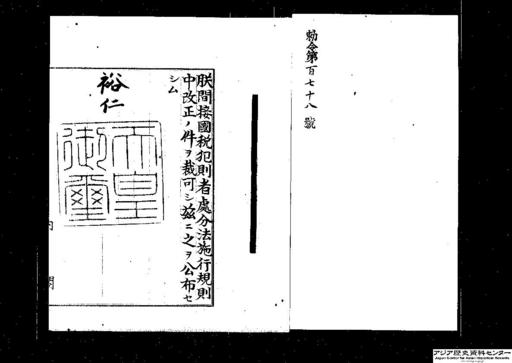 勅令第百七十八號
朕間接國税犯則者處分法施行規則
中改正ノ件ヲ裁可シ茲ニ之ヲ公布セ
シム
裕仁
天皇
御璽
内閣
アジア歴史資料センター
Japan Center for Asian Historical Records